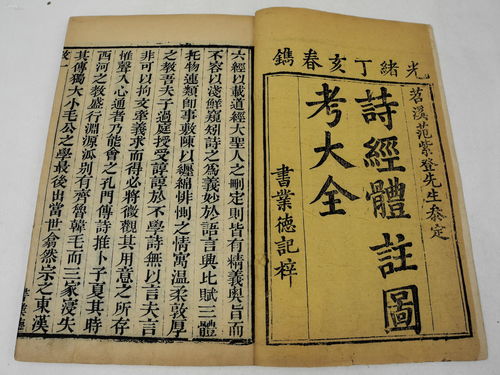 光緒丁亥春鐫
苕溪范紫登先生叅定
詩經體註圖
考大全
書業德記梓
六經以載道經大聖人之刪定則皆有精義奧旨而
不容以淺鮮窺矧詩之爲義妙於語言興比賦三體
托物連類卽事敷陳以纏綿悱惻之情寓溫柔敦厚
之教昔夫子過庭授受諄諄於不學詩無以言夫言
非可以拘文牽義求而得必將微觀其用意之所存
惟聲入心通者乃能會之孔門傳詩推卜子夏其時
西河之教盛行淵源派別有齊魯韓毛而三家浸失
其傳獨大小毛公之學最後出當世翕然宗之東漢